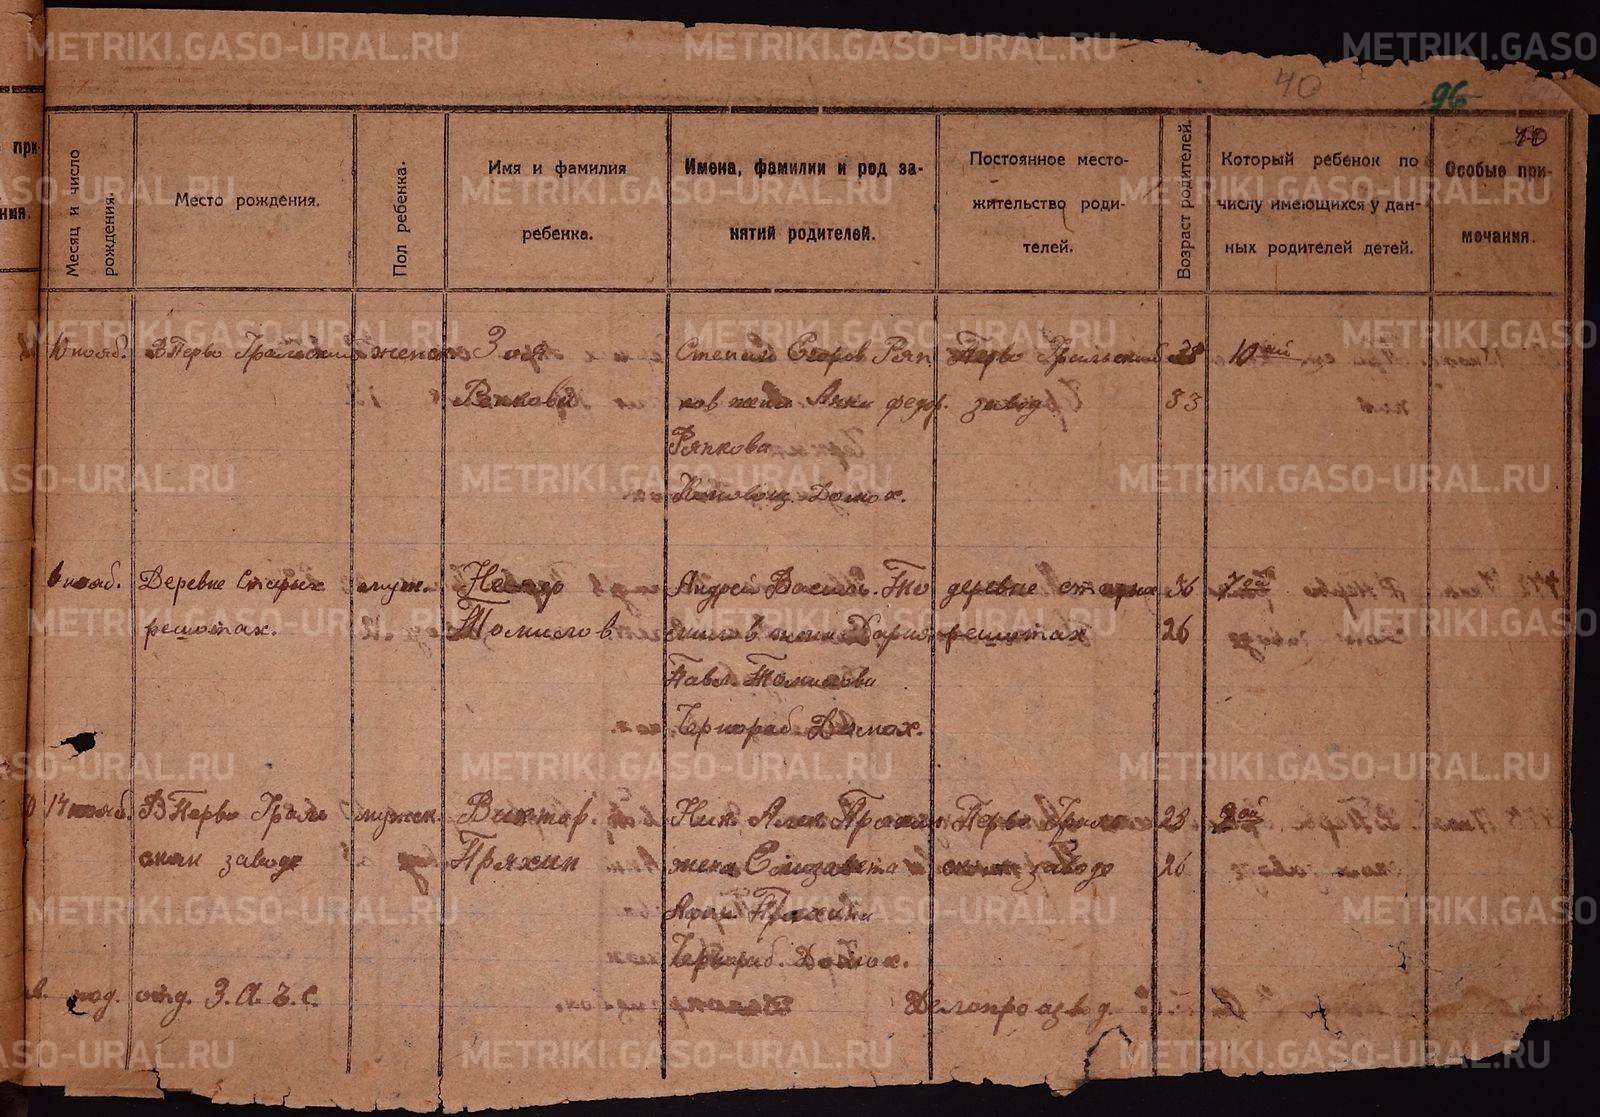 METRIKI.GASO-URAL.RU METRIKI.GASO-URAL.RU METRIKI.GASO
40
96
при-
ния.
Месяц и число рождения.
Место рождения.
Пол ребенка.
Имя и фамилия
ребенка.
Имена, фамилии и род за-
нятий родителей.
Постоянное место-
жительство роди-
телей.
Возраст родителей.
Который ребенок по
числу имеющихся у дан-
ных родителей детей.
Особые при-
мечания.
10 нояб.
В Перво Уральский
женск
Зоя
Степан Егоров Ряп
ков жена Анна федор.
Ряпкова
Домох.
Перво Уральский
завод
38
33
10 ый
нояб.
Деревне Старых
решотах.
муж.
Томилов.
Андрей Василь. То
милов жена Дарья
Павл. Томилова
Чернораб. Домох.
деревне старых
решотах
36
26
7 ой
14 нояб.
В Перво Ураль
скам заводе
мужск.
Виктар.
Пряхин
Ник Алек Пряхин
жена Елизавета
Пряхина
Чернораб. Домох.
Перво Ураль
ском заводе
28
26
2 ой
под. отд. З. А. Г. С.
Делопроизвод.